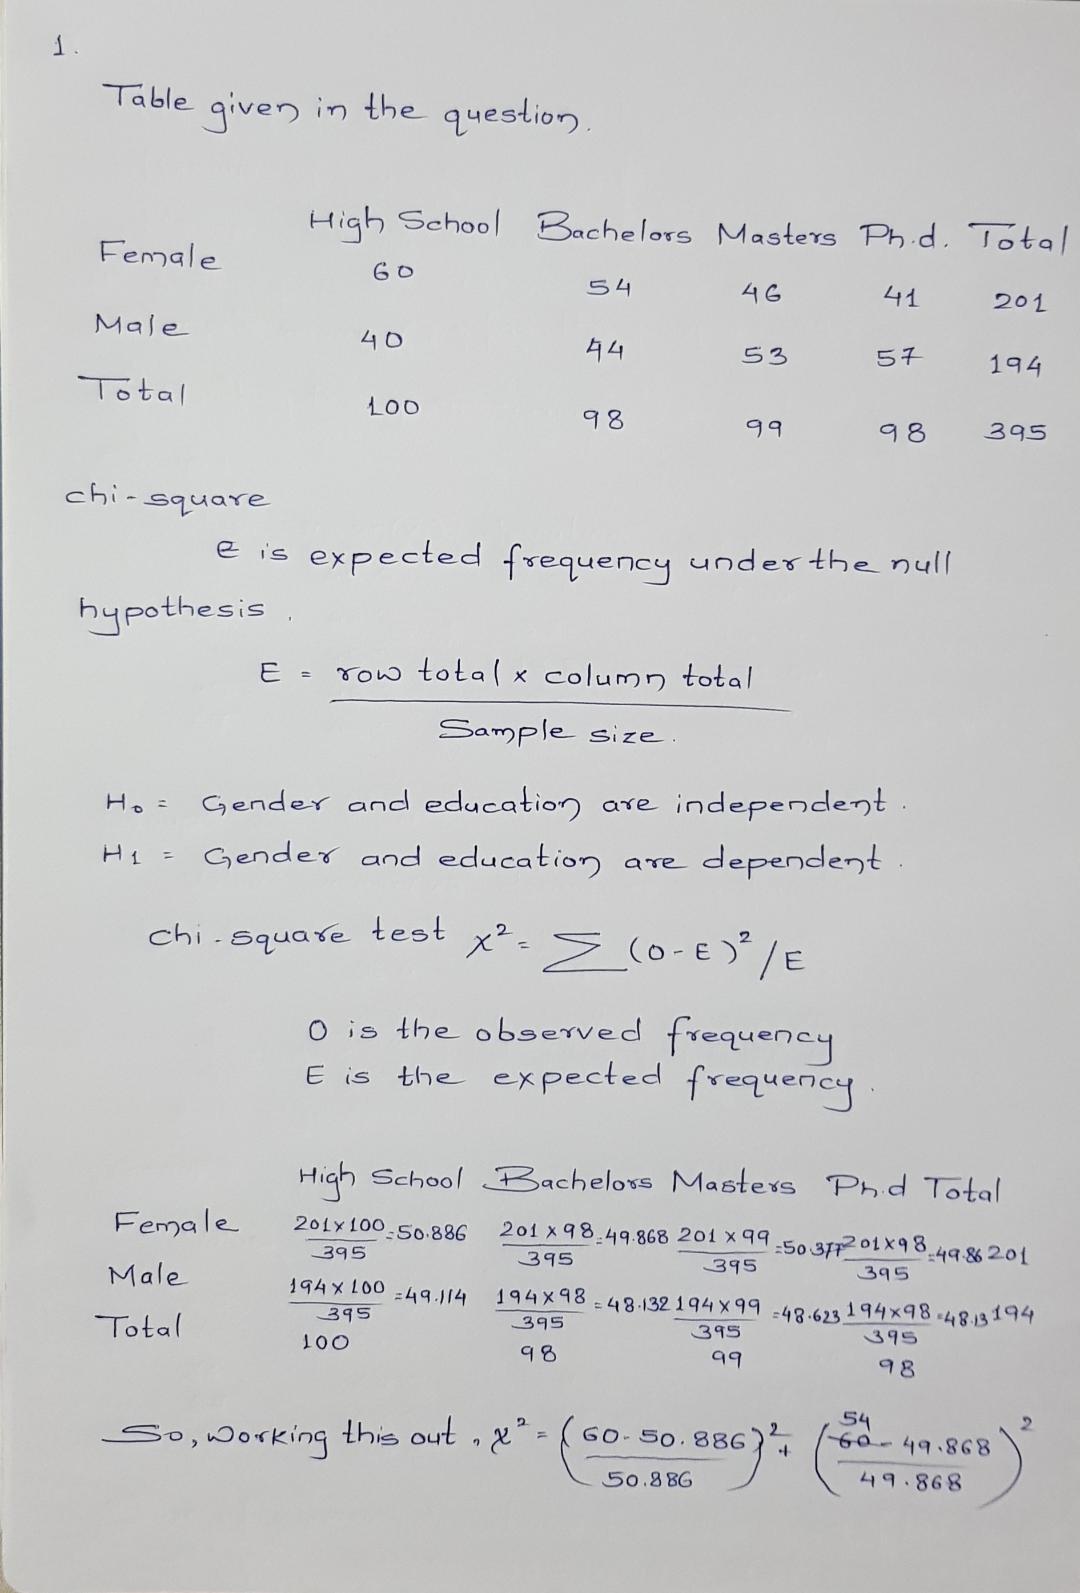 1.
Table given in the question.
High School Bachelors Masters Ph.d. Total
Female 60 54 46 41 201
Male 40 44 53 57 194
Total 100 98 99 98 395
chi-square
e is expected frequency under the null
hypothesis.
E = row total x column total
Sample size.
H0 = Gender and education are independent.
H1 = Gender and education are dependent.
chi-square test x² = Σ (O-E)² /E
O is the observed frequency
E is the expected frequency.
High School Bachelors Masters Ph.d Total
Female 201x100/395 =50.886 201x98/395 =49.868 201x99/395 =50.377 201x98/395 =49.86 201
Male 194x100/395 =49.114 194x98/395 =48.132 194x99/395 =48.623 194x98/395 =48.13 194
Total 100 98 99 98
So, working this out, x² = (60-50.886/50.886)² + (54 60 - 49.868/49.868)²